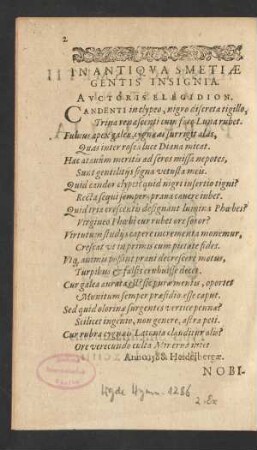 2.
IN ANTIQVA SMETIÆ
GENTIS INSIGNIA.
AVCTORIS ELEGIDION.
CANDENTI in clypeo, nigro discreta tigillo,
Tripa
cum face Luna rubet.
Fuluus apex galea, cygnaeas surrigit alas,
Quas inter roseâ luce Diana micat.
Haec atauûm meritis ad seros missa nepotes,
Sunt gentilitij signa vetusta mei.
Quid candor clypei? quid nigri insertio tigni?
Recta sequi semper, praua cauere iubet.
Quid tres crescentis designant lumina Phœbes?
Virgineo Phœbe cur rubet ore soror?
Virtutum studijs capere incrementa monemur,
Crescat vt in primis cum pietate fides.
animis possint proni decrescere motus,
Turpibus & falsis erubuisse decet.
Cur galea aurata est? sic puri mentis, oportet
Munitum semper præsidio esse caput.
Sed quid olorina surgentes vertice pennæ?
Scilicet ingenio, non genere, astra peti.
Cur rubra cygneis Latonia clauditur alis?
Ore verecundo culta Minerua nitet.
Anno 1588. Heidelbergæ.
NOBI-